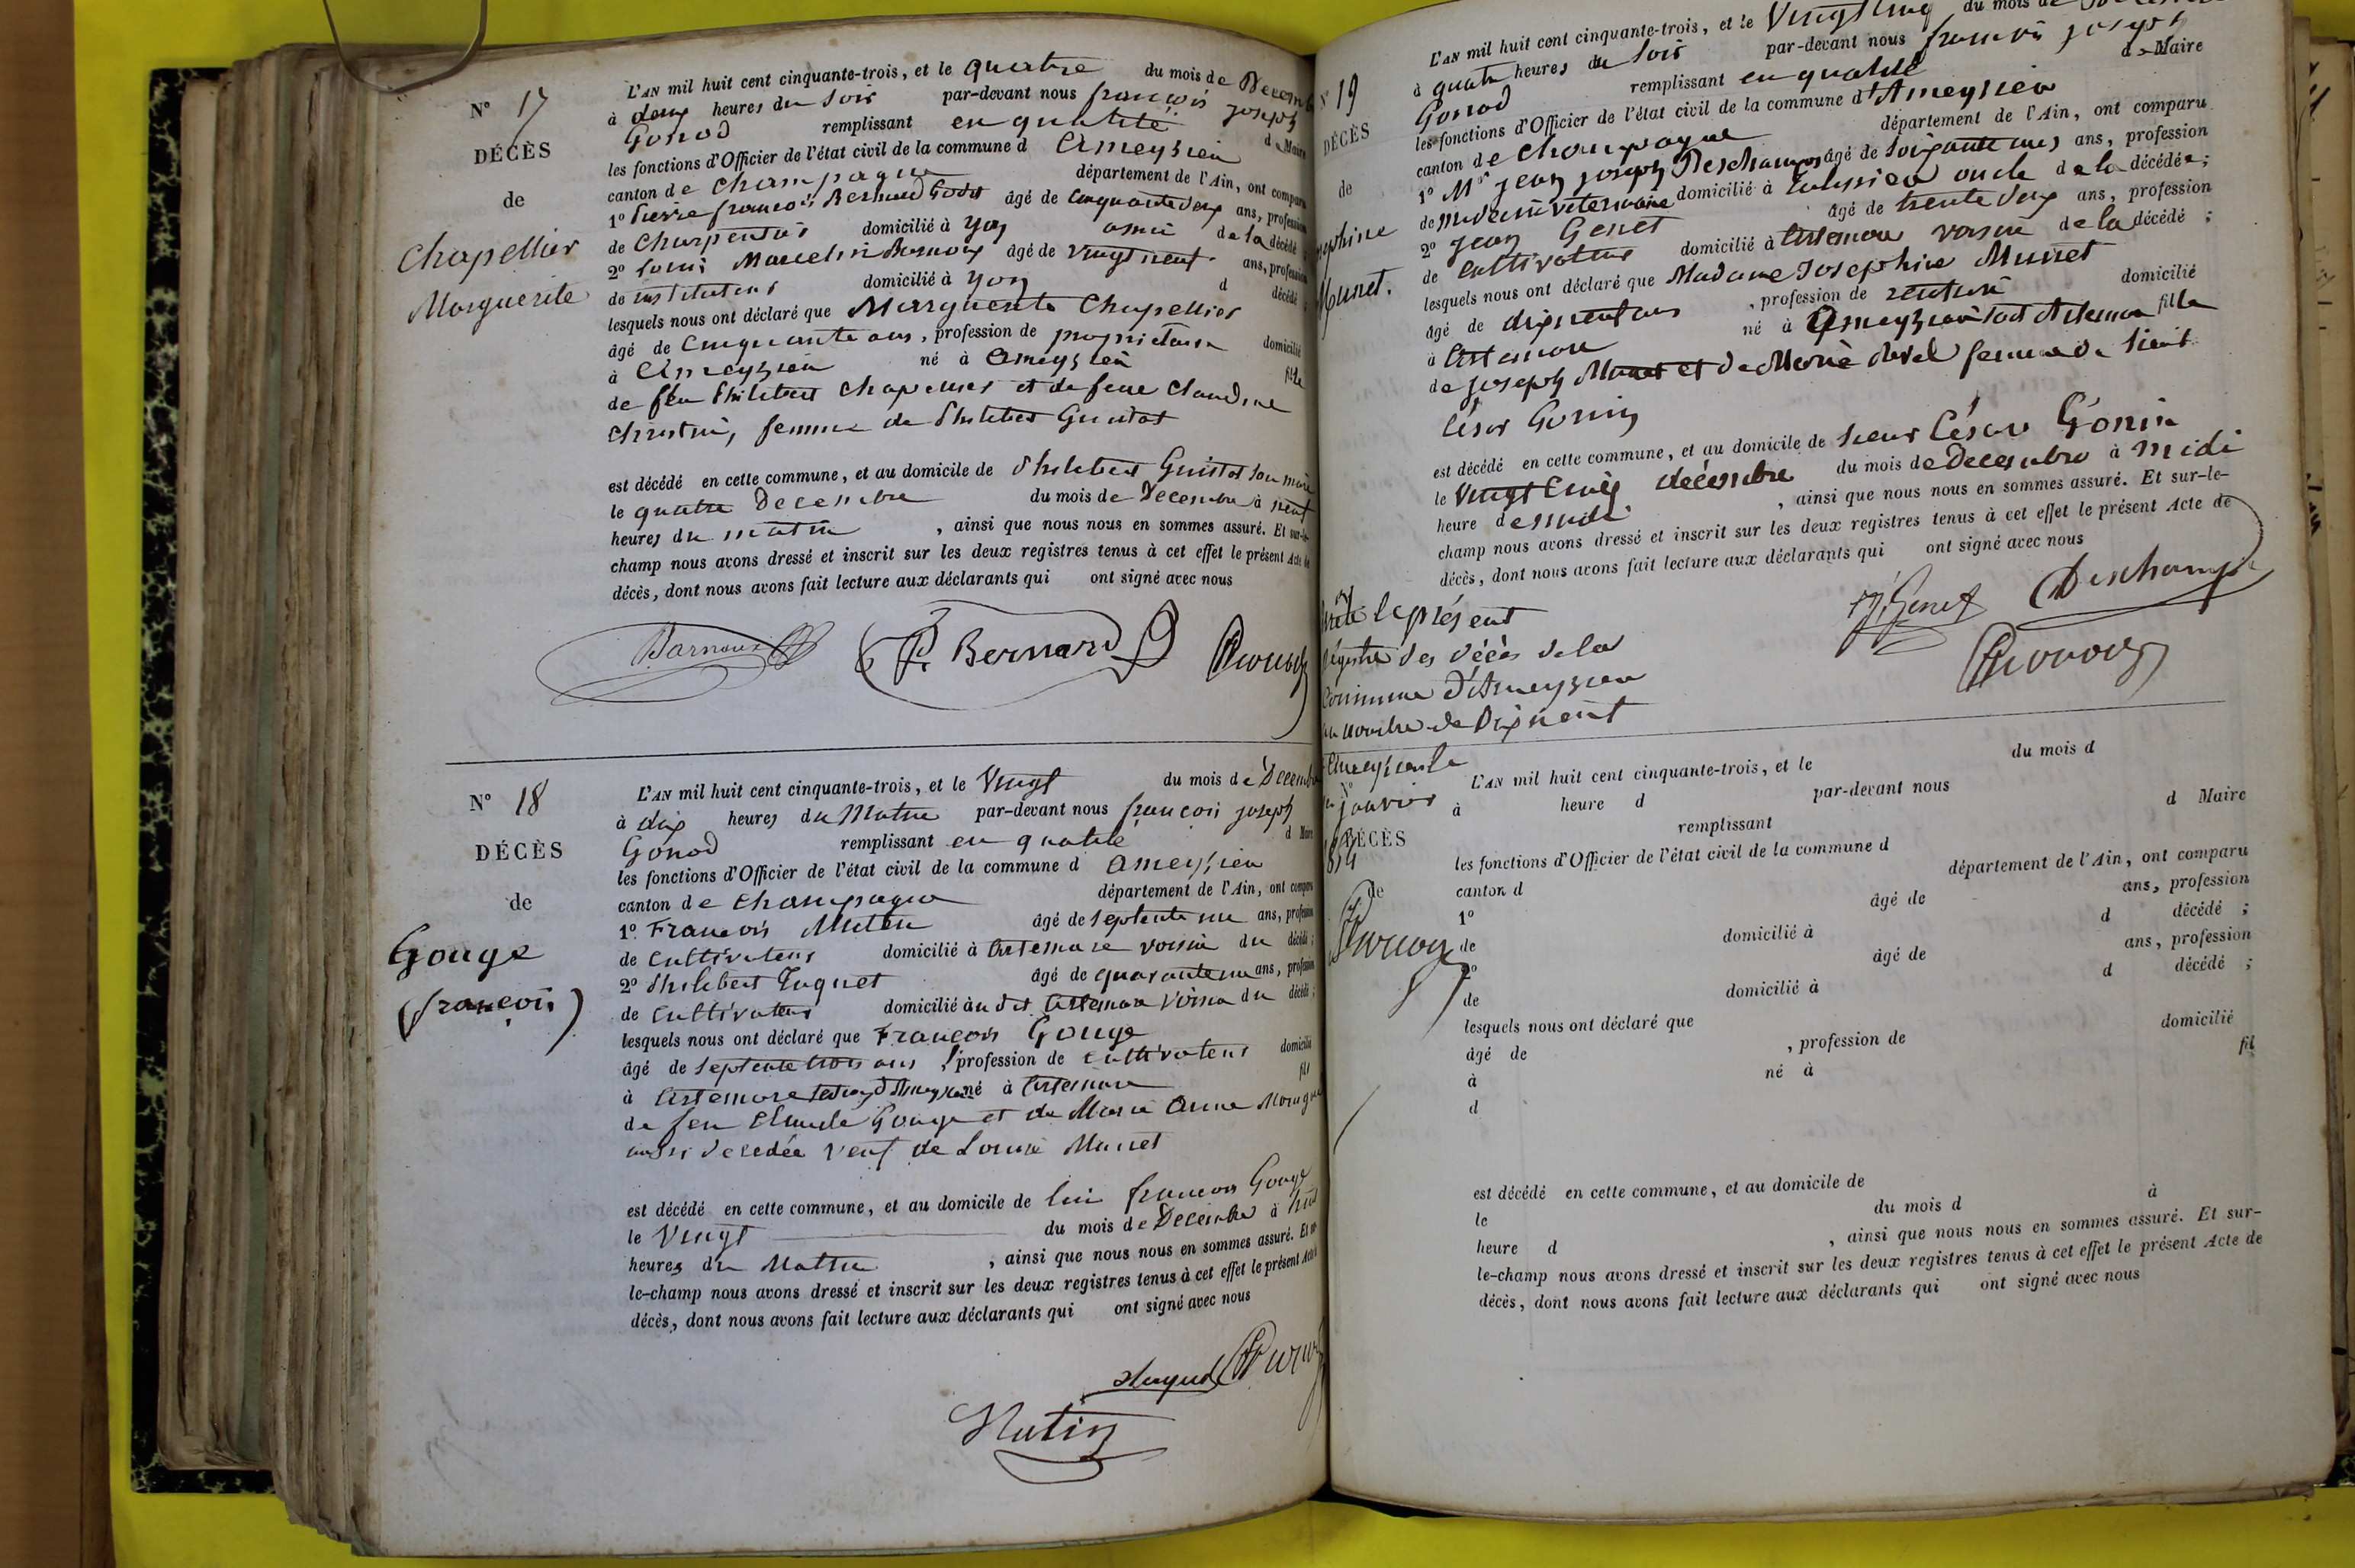 N° 17
DÉCÈS
de
Chapellier
Marguerite
L'AN mil huit cent cinquante-trois, et le quatre du mois de Décemb
à deux heures du soir par-devant nous françois joseph
Gonod remplissant en qualité d Maire
les fonctions d'Officier de l'état civil de la commune d Ameyzieu
canton de Champagne département de l'Ain, ont comparu
1° Pierre françois Bernard âgé de Cinquante deux ans, profession
de Charpentier domicilié à Yon de la décédé
2° Louis Marcelin âgé de Vingt neuf ans, profession
de instituteur domicilié à Yon d décédé
lesquels nous ont déclaré que Marguerite Chapellier
âgé de Cinquante ans, profession de propriétaire domicilié
à Ameyzieu né à Ameyzieu fille
de feu Philibert Chapellier et de feue Claudine
femme de Philibert
est décédé en cette commune, et au domicile de Philibert
le quatre Decembre du mois de Decembre à neuf
heures du matin , ainsi que nous nous en sommes assuré. Et sur-le-
champ nous avons dressé et inscrit sur les deux registres tenus à cet effet le présent Acte de
décès, dont nous avons fait lecture aux déclarants qui ont signé avec nous
P. Bernard
N° 18
DÉCÈS
de
Gouge
(françois)
L'AN mil huit cent cinquante-trois, et le Vingt du mois de Décemb
à dix heures du Matin par-devant nous françois joseph
Gonod remplissant en qualité d Maire
les fonctions d'Officier de l'état civil de la commune d Ameyzieu
canton de Champagne département de l'Ain, ont comparu
1° François Mutin âgé de septante un ans, profession
de Cultivateur domicilié à Artemare voisin du décédé ;
2° Philibert Huguet âgé de quarante un ans, profession
de Cultivateur domicilié à u dit Artemare voisin du décédé ;
lesquels nous ont déclaré que François Gouge
âgé de septente trois ans, profession de Cultivateur domicilié
à Artemare né à Artemare fils
de feu Claude Gouge et de Marie Anne
aussi décédée veuf de Louise Munet
est décédé en cette commune, et au domicile de lui françois Gouge
le Vingt du mois de Décembre à huit
heures du Matin , ainsi que nous nous en sommes assuré. Et sur-
le-champ nous avons dressé et inscrit sur les deux registres tenus à cet effet le présent Acte
décès, dont nous avons fait lecture aux déclarants qui ont signé avec nous
Huguet
Mutin
N° 19
DÉCÈS
de
Munet.
L'AN mil huit cent cinquante-trois, et le Vingt cinq du mois de
à quatre heures du soir par-devant nous françois joseph
Gonod remplissant en qualité d Maire
les fonctions d'Officier de l'état civil de la commune d'Ameyzieu
canton de Champagne département de l'Ain, ont comparu
1° Mr jean joseph Deschamps âgé de soixante ans, profession
de médecin vétérinaire domicilié à oncle de la décédée ;
2° Jean Genet âgé de trente deux ans, profession
de Cultivateur domicilié à Artemare voisin de la décédé ;
lesquels nous ont déclaré que Madame Josephine Munet
âgé de dix neuf ans , profession de rentière domicilié
à Artemare né à Ameyzieu fille
de joseph Munet et de Marie femme de Sieur
César Gonin
est décédé en cette commune, et au domicile de sieur César Gonin
le Vingt Cinq décembre du mois de Decembre à midi
heure de midi , ainsi que nous nous en sommes assuré. Et sur-le-
champ nous avons dressé et inscrit sur les deux registres tenus à cet effet le présent Acte de
décès, dont nous avons fait lecture aux déclarants qui ont signé avec nous
J. Genet Deschamps
le présent
Régistre des décès de la
Commune d'Ameyzieu
au nombre de Dix neuf
Ameyzieu le
janvier
DÉCÈS
de
L'AN mil huit cent cinquante-trois, et le du mois d
à heure d par-devant nous
remplissant d Maire
les fonctions d'Officier de l'état civil de la commune d
canton d département de l'Ain, ont comparu
1° âgé de ans, profession
de domicilié à d décédé ;
2° âgé de ans, profession
de domicilié à d décédé ;
lesquels nous ont déclaré que
âgé de , profession de domicilié
à né à fil
d
est décédé en cette commune, et au domicile de
le du mois d à
heure d , ainsi que nous nous en sommes assuré. Et sur-
le-champ nous avons dressé et inscrit sur les deux registres tenus à cet effet le présent Acte de
décès, dont nous avons fait lecture aux déclarants qui ont signé avec nous